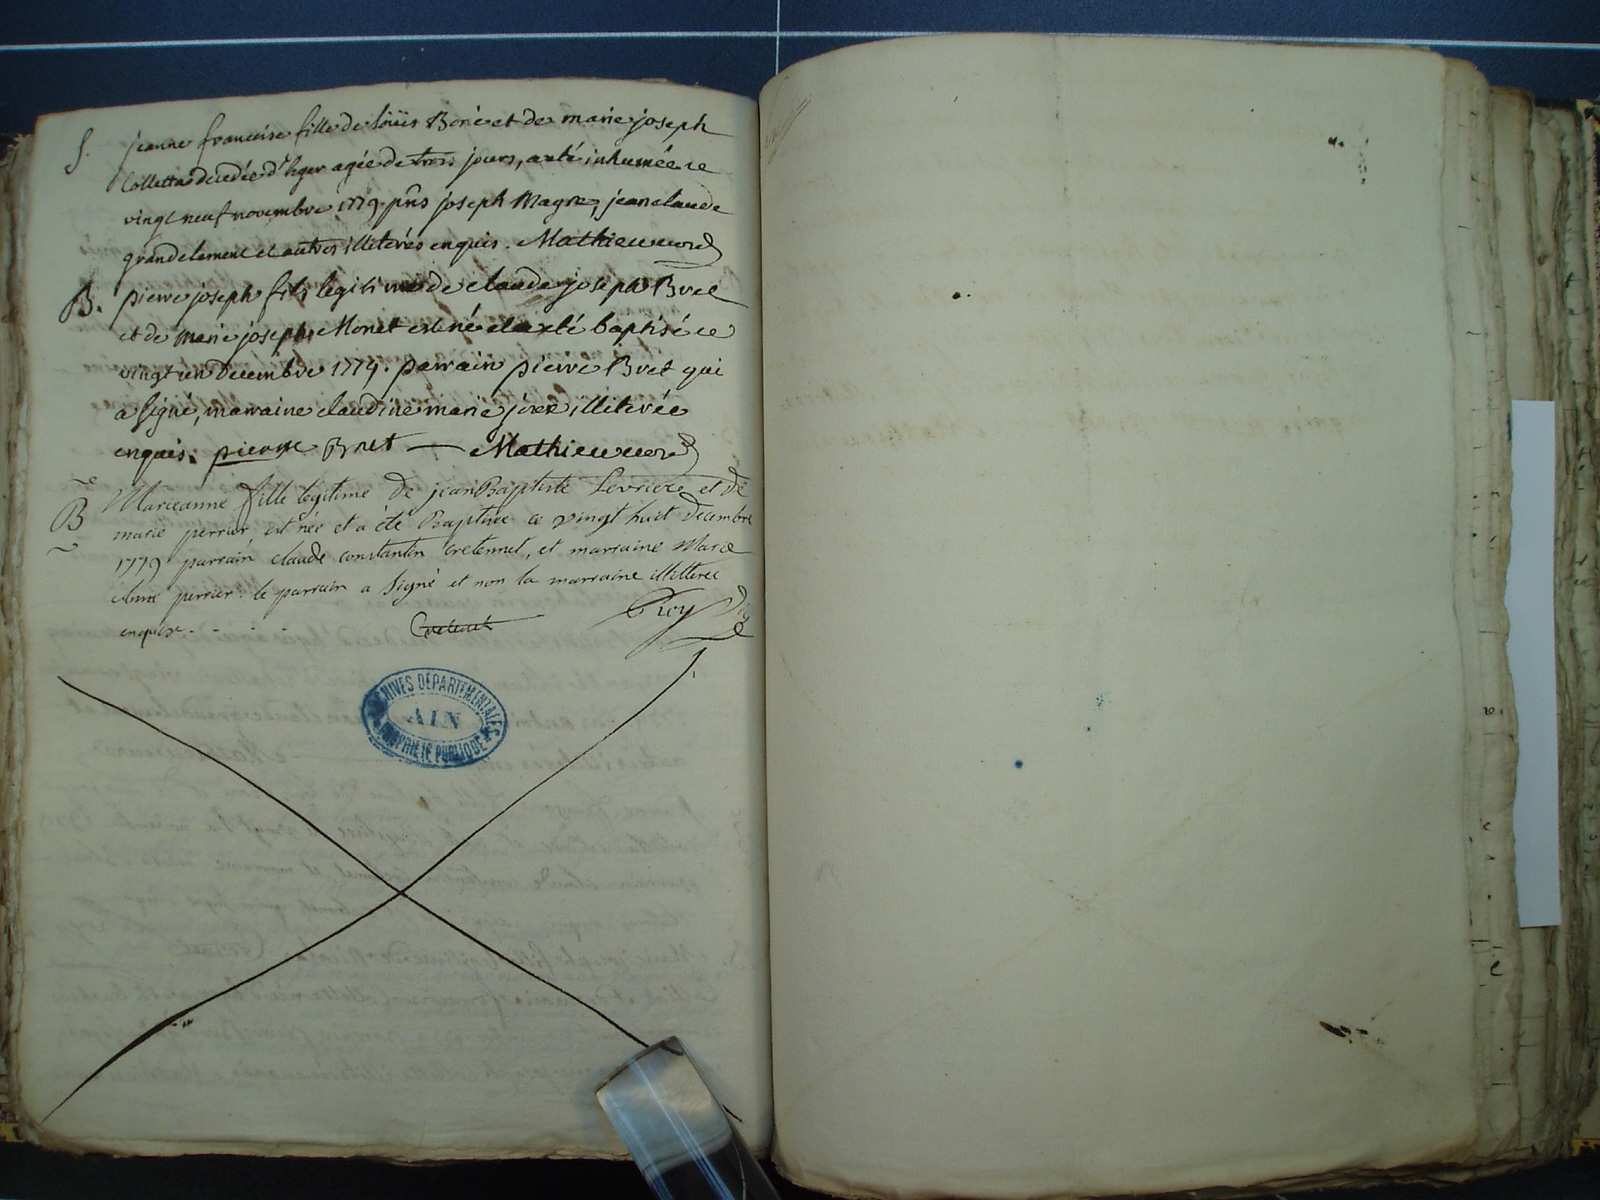 S. jeanne francoise fille de loüis Boné et de marie joseph
Colletta decedée d'hyer agée de trois jours, a eté inhumée ce
vingt neuf novembre 1779. pñs joseph Magne, jean claude
grandclement et autres illiterés enquis. Mathieu
B. pierre joseph fils legitime de claude joseph Bret
et de marie joseph Monet est né et a eté baptisé ce
vingt un decembre 1779. parrain pierre Bret qui
a signé, marraine claudine marie illiterée
enquis. pierre Bret Mathieu
B Marieanne fille legitime de jean Baptiste et de
marie perrier, est née et a été Baptisée ce vingt huit decembre
1779 parrain claude constantin cretennet, et marraine Marie
perrier. le parrain a signé et non la marraine illitterée
enquise.
ARCHIVES DÉPARTEMENTALES
AIN
PROPRIÉTÉ PUBLIQUE